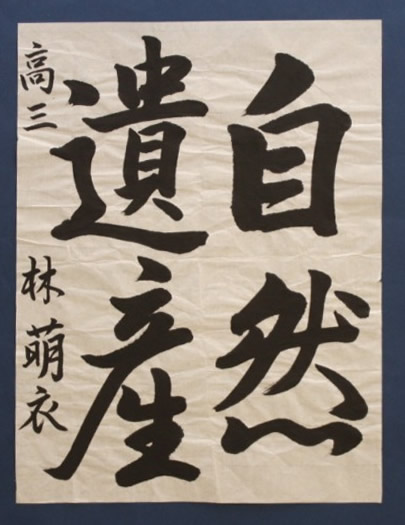 自然
遺産
高三 林萌衣